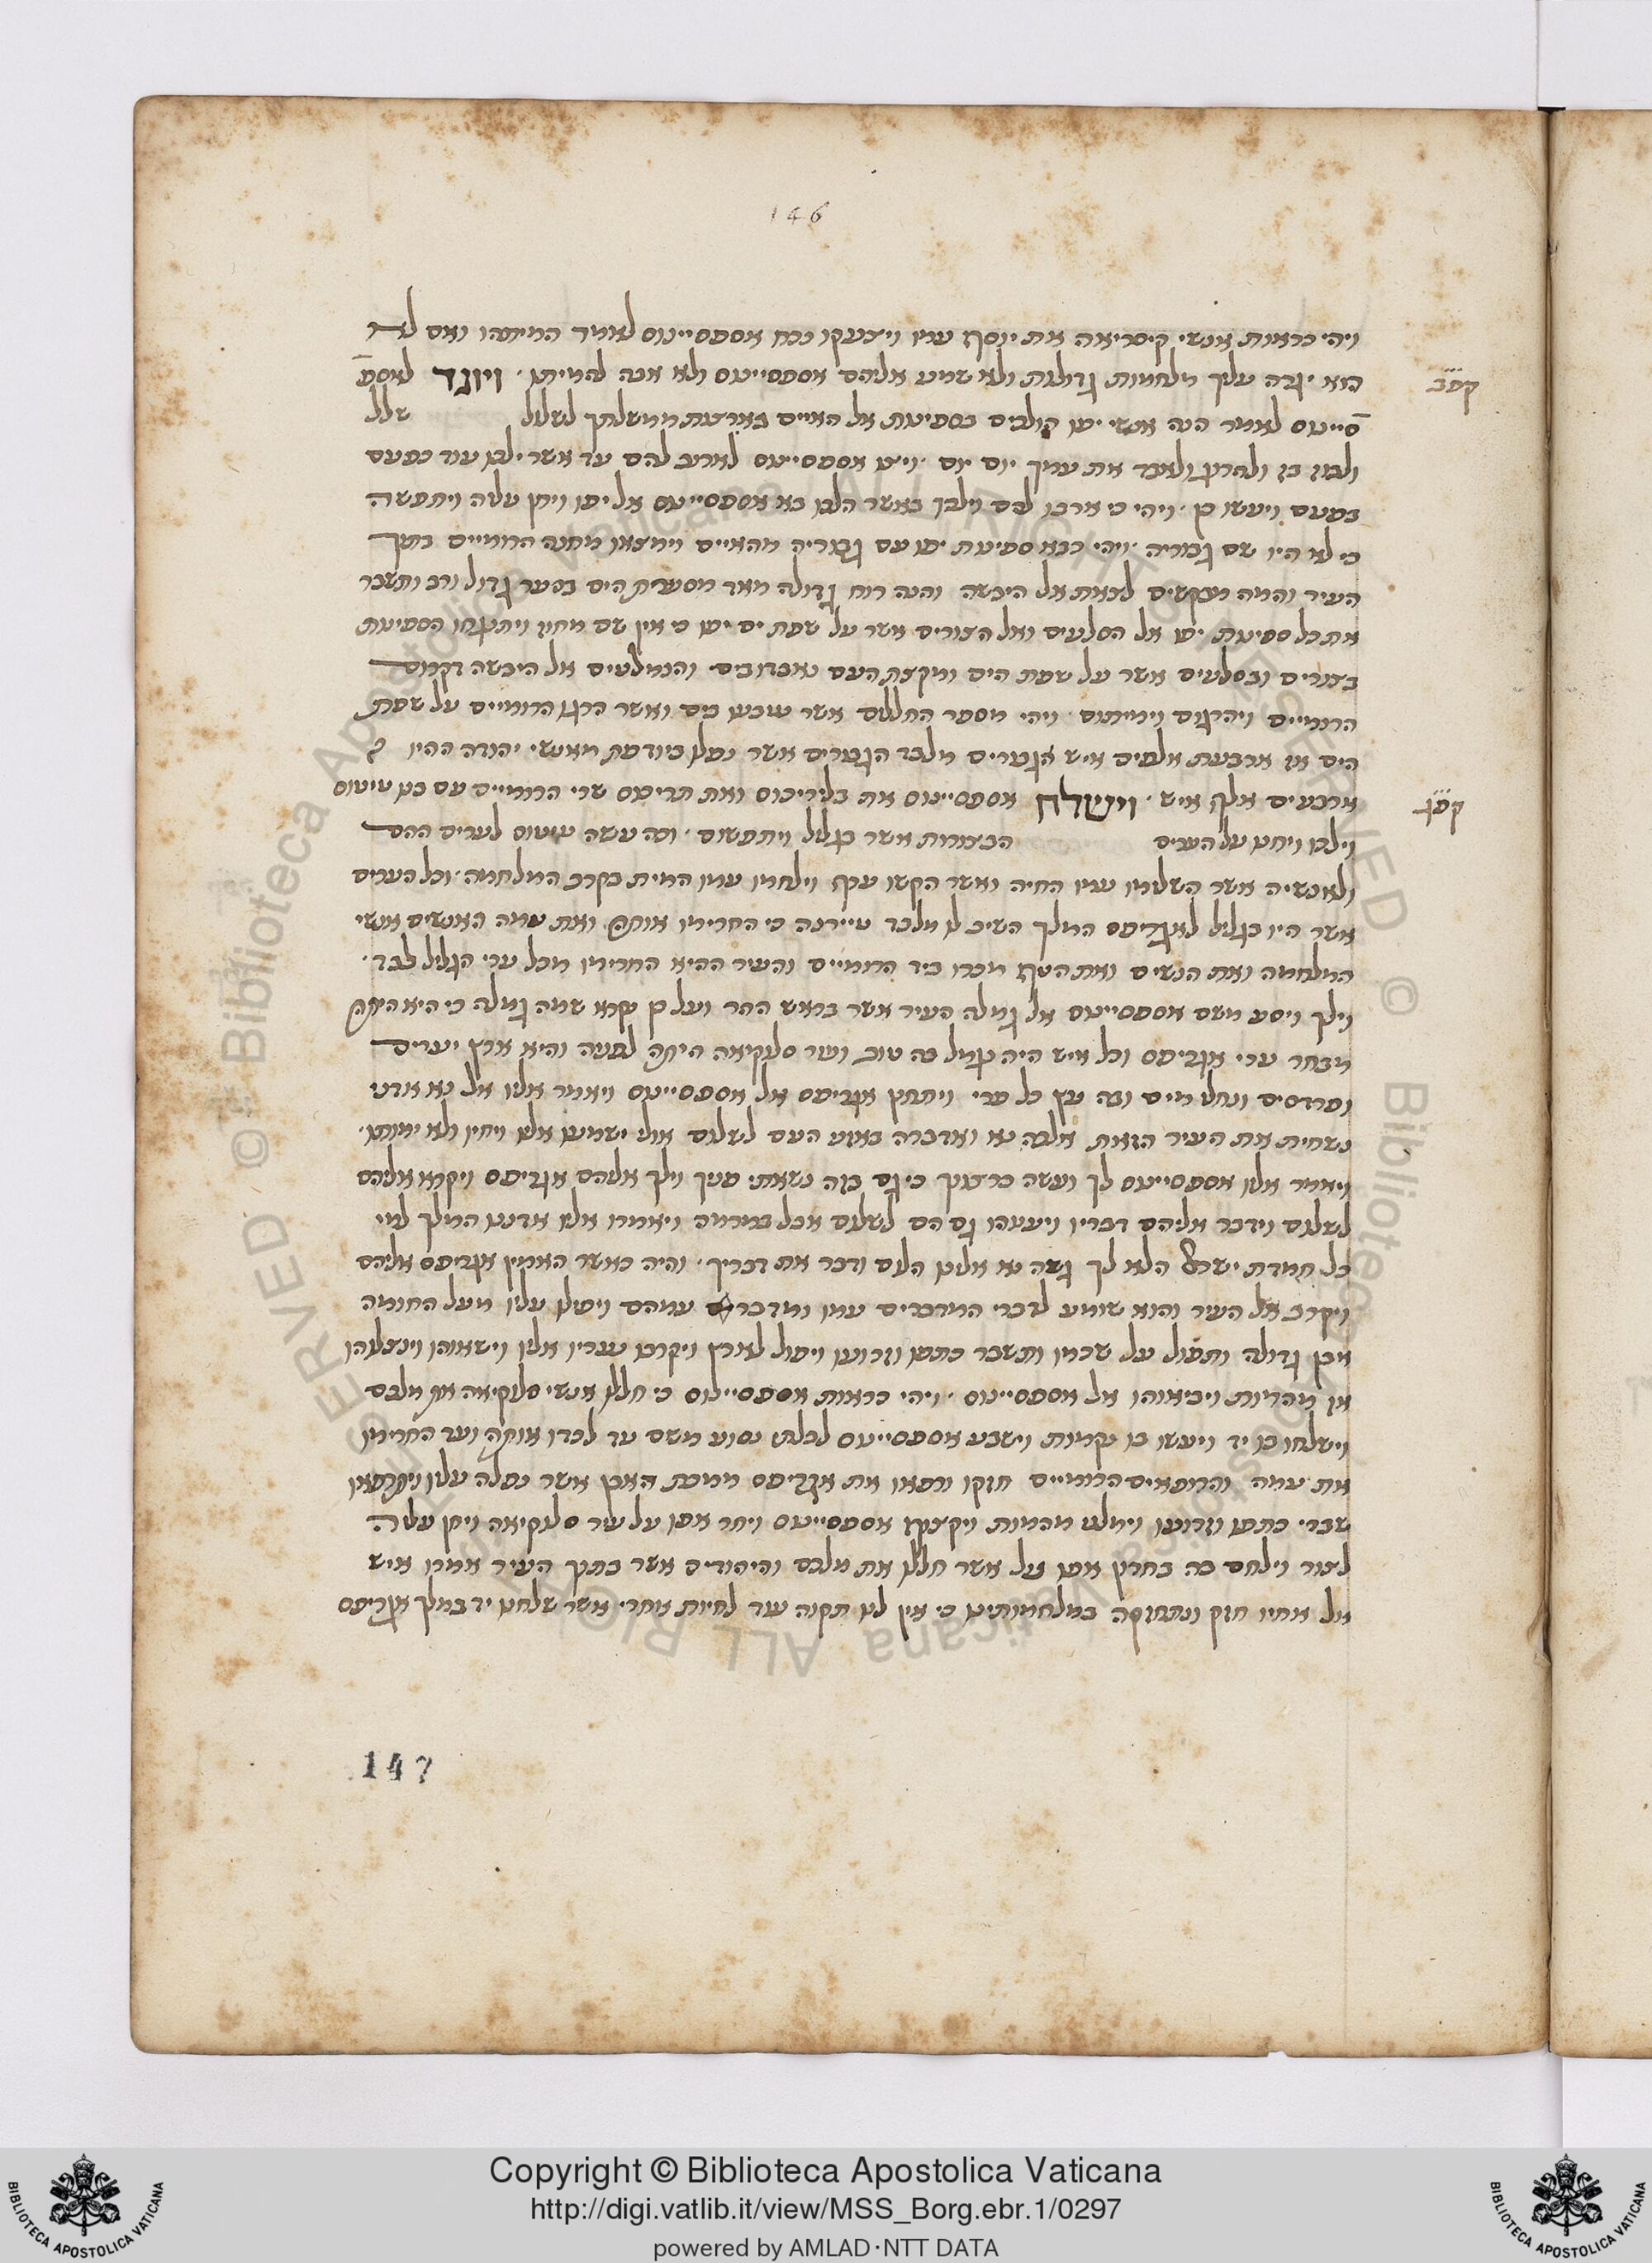 146
ויהי כראות אנשי קיסריאה את יוסף עמו ויצעקו נכח אספסיינוס לאמר המיתהו ואם לא
הוא יגרה עליך מלחמות גדולות ולא שמע אליהם אספסיינוס ולא אבה להמיתו · ויוגד לאספ
קפב
סיינוס לאמר הנה אנשי יפו הולכים בספינות אל האיים בארצות ממשלתך לשלול שלל
ולבוז בז ולהרוג ולאבד את עמך יום יום · ויצו אספסיינוס לארוב להם עד אשר ילכו עוד כפעם
בפעם ויעשו כן · ויהי כי ארבו להם וילכו כאשר הלכו בא אספסיינוס אל יפו ויחן עליה ויתפשה
כי לא היו שם גבוריה · ויהי כבא ספינות יפו עם גבוריה מהאיים וימצאו מחנה הרומיים בתוך
העיר והמה מבקשים לצאת אל היבשה והנה רוח גדולה מאד מסערת הים בסער גדול ורב ותשבר
את כל ספינות יפו אל הסלעים ואל הצורים אשר על שפת ים יפו כי אין שם מחוז ויתנגחו הספינות
בצורים ובסלעים אשר על שפת הים ומקצת העם נאבדו בים והנמלטים אל היבשה דקרום
הרומיים ויהרגום וימיתום · ויהי מספר החללים אשר טבעו בים ואשר הרגו הרומיים על שפת
הים אז ארבעת אלפים איש הגבורים מלבד הגבורים אשר נפלו ביודפת מאנשי יהודה ההיו
ארבעים אלף איש · וישלח אספסיינוס את בלריכוס ואת תריונוס שרי הרומיים עם בנו טיטוס
קפג
וילכו ויחנו על הערים הבצורות אשר בגליל ויתפשום · וכה עשה טיטוס לערים ההם
ולאנשיה אשר השלימו עמו החיה ואשר הקשו ערף וילחמו עמו המית בקרב המלחמה · וכל הערים
אשר היו בגליל לאגריפס המלך השיב לו מלבד טיירנה כי החרימו אותה ואת עמה האנשים אנשי
המלחמה ואת הנשים ואת הטף מכרו ביד הרומיים והעיר ההיא החרימו מכל ערי הגליל לבד ·
וילך ויסע משם אספסיינוס אל גמלה העיר אשר בראש ההר ועל כן קרא שמה גמלה כי היא היתה
מבחר ערי אגריפס וכל איש היה עמל בה טוב ועיר סלוקיאה היתה לפניה והיא ארץ יערים
ופרדסים ונחלי מים ובה עץ כל פרי ויתחנן אגריפס אל אספסיינוס ויאמר אליו אל נא אדוני
נשחית את העיר הזאת אלכה נא ואדברה באזני העם לשלום אולי ישמעו אלי ויחיו ולא ימותו ·
ויאמר אליו אספסיינוס לך ועשה כרצונך כי גם בזה נשאתי פניך וילך אליהם אגריפס ויקרא אליהם
לשלום וידבר אליהם דבריו ויענהו גם הם לשלום אבל במרמה ויאמרו אליו אדונינו המלך למי
כל חמדת ישראל הלא לך גשה נא אלינו הלום ודבר את דבריך · והיה כאשר האמין אגריפס אליהם
ויקרב אל העיר והוא שומע לדברי המדברים עמו ומדבר עמהם ויטילו עליו מעל החומה
אבן גדולה ותפול על שכמו ותשבר כתפו וזרועו ויפול לארץ ויקרבו עבדיו אליו וישאוהו וינצלוהו
אז מהמות ויביאוהו אל אספסיינוס · ויהי כראות אספסיינוס כי חללו אנשי סלוקיאה את מלכם
וישלחו בו יד ויעשו בו נקמות וישבע אספסיינוס לבלתי נסוע משם עד לכדו אותה ועד החרימו
את עמה והרופאים הרומיים חזקו ורפאו את אגריפס ממכת האבן אשר נפלה עליו וירפאו
שברי כתפו וזרועו וימלט מהמות ויקצוף אספסיינוס ויחר אפו על עיר סלוקיאה ויחן עליה
לצור וילחם בה בחרון אפו על אשר חללו את מלכם והיהודים אשר בתוך העיר אמרו איש
אל אחיו חזק ונתחזקה במלחמותינו כי אין לנו תקוה עוד לחיות אחרי אשר שלחנו יד במלך אגריפס
147
Copyright © Biblioteca Apostolica Vaticana
http://digi.vatlib.it/view/MSS_Borg.ebr.1/0297
powered by AMLAD·NTT DATA